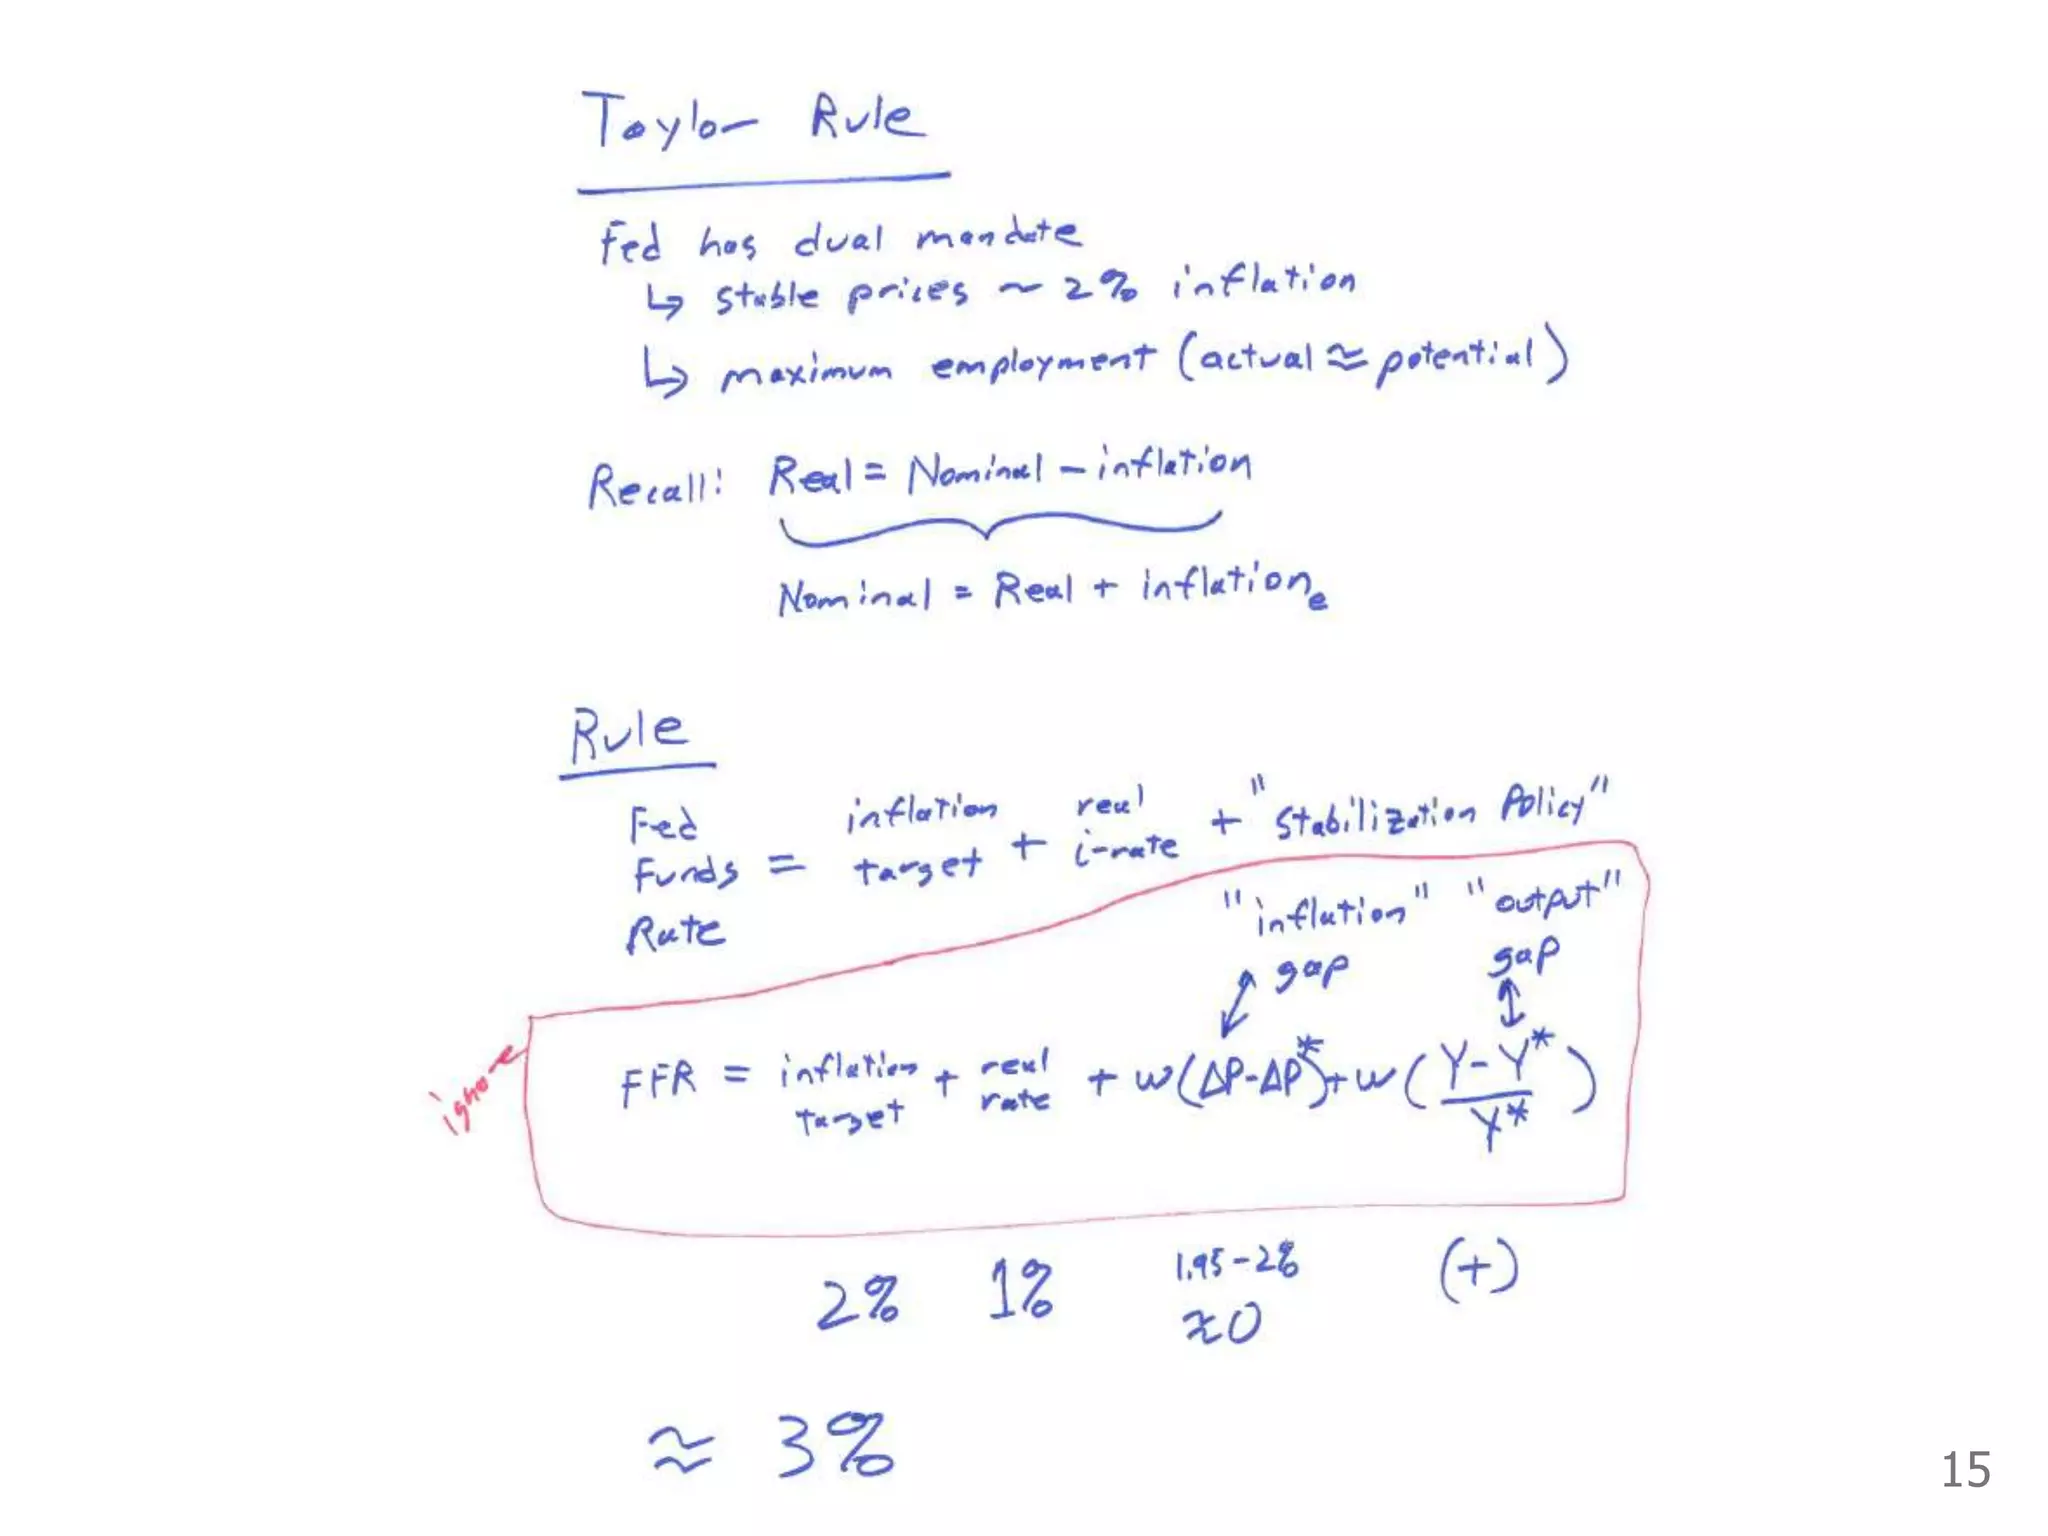 Taylor Rule
Fed has dual mandate
↳ stable prices ~ 2% inflation
↳ maximum employment (actual ≈ potential)
Recall: Real = Nominal - inflation
Nominal = Real + inflation e
Rule
Fed Funds Rate = inflation target + real i-rate + "Stabilization Policy"
"inflation" gap "output" gap
ignore
FFR = inflation target + real rate + w(ΔP-ΔP*) + w(Y-Y*/Y*)
2% 1% 1.95-2% ≈0 (+)
≈ 3%
15